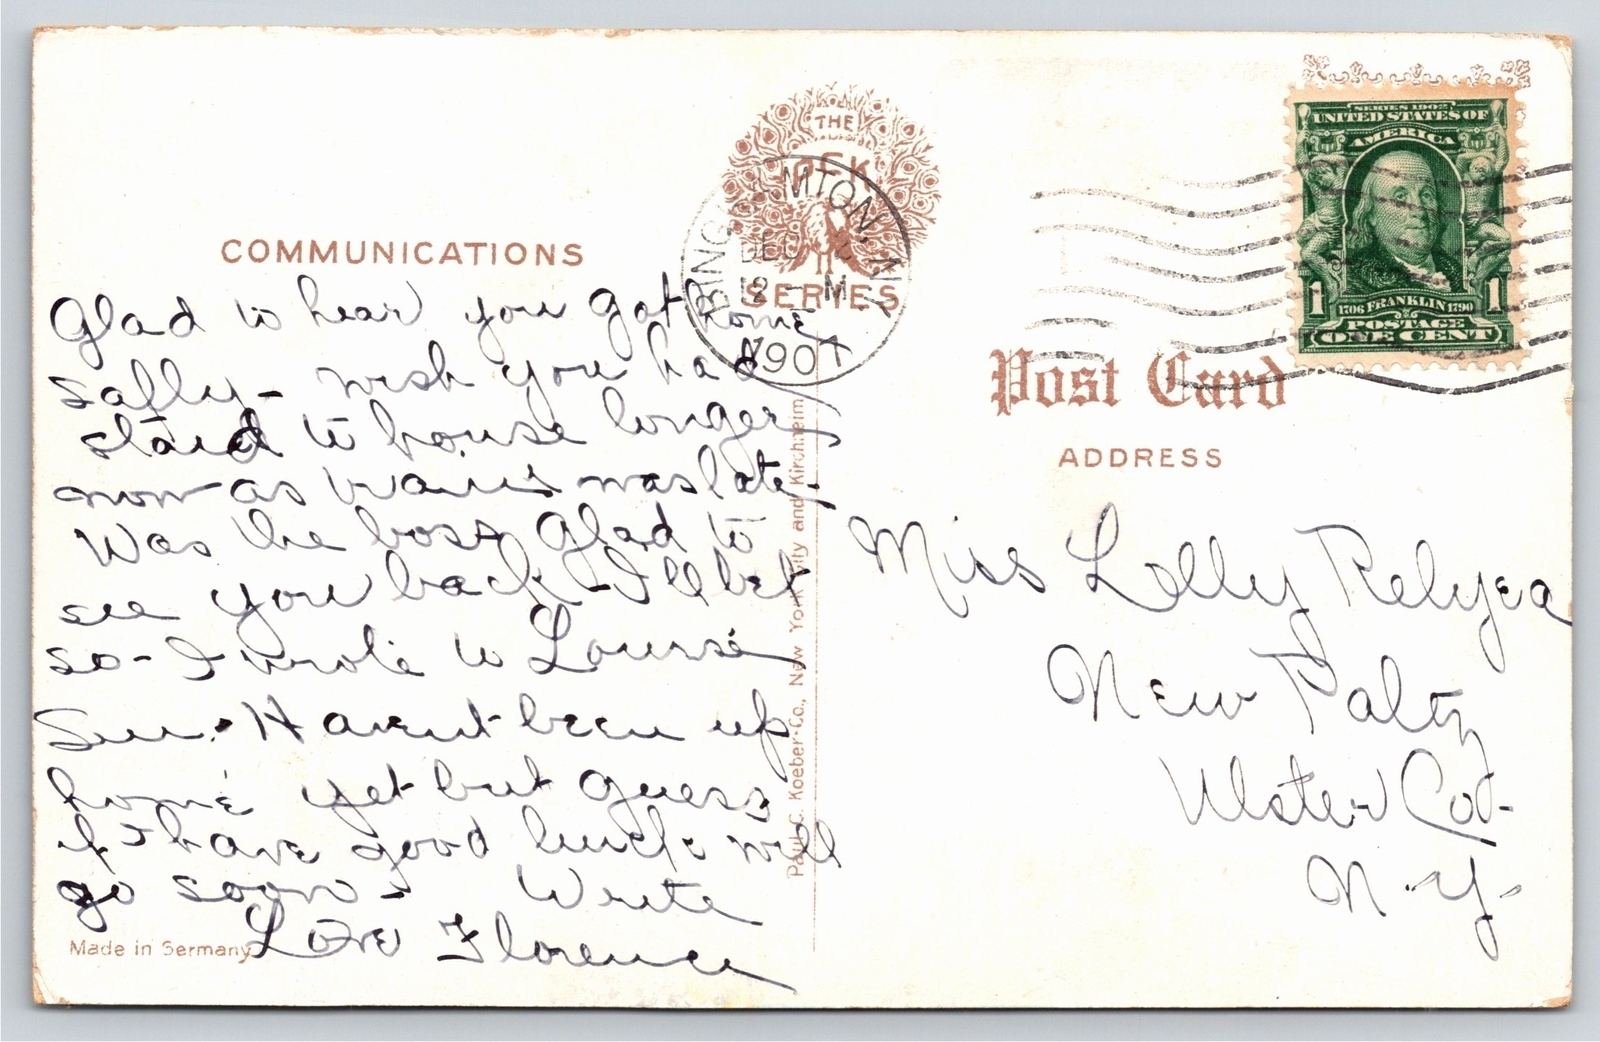 COMMUNICATIONS
Glad to hear you got home
safly - wish you had
staid to house longer
now as trains was late -
Was the boss glad to
see you back - I'll bet
so - I wrote to Louise
Sun. Havent been up
home yet but guess
if I have good luck will
go soon - Write
Love Florence
Made in Germany
THE
SERIES
BINGHAMTON, N.Y.
DEC
12 - M
1907
Paul C. Koeber Co., New York City and Kirchheim
SERIES 1902
UNITED STATES OF
AMERICA
1 1706 FRANKLIN 1790 1
POSTAGE
ONE CENT
Post Card
ADDRESS
Miss Lolly Relyea
New Paltz
Ulster Co.
N.Y.